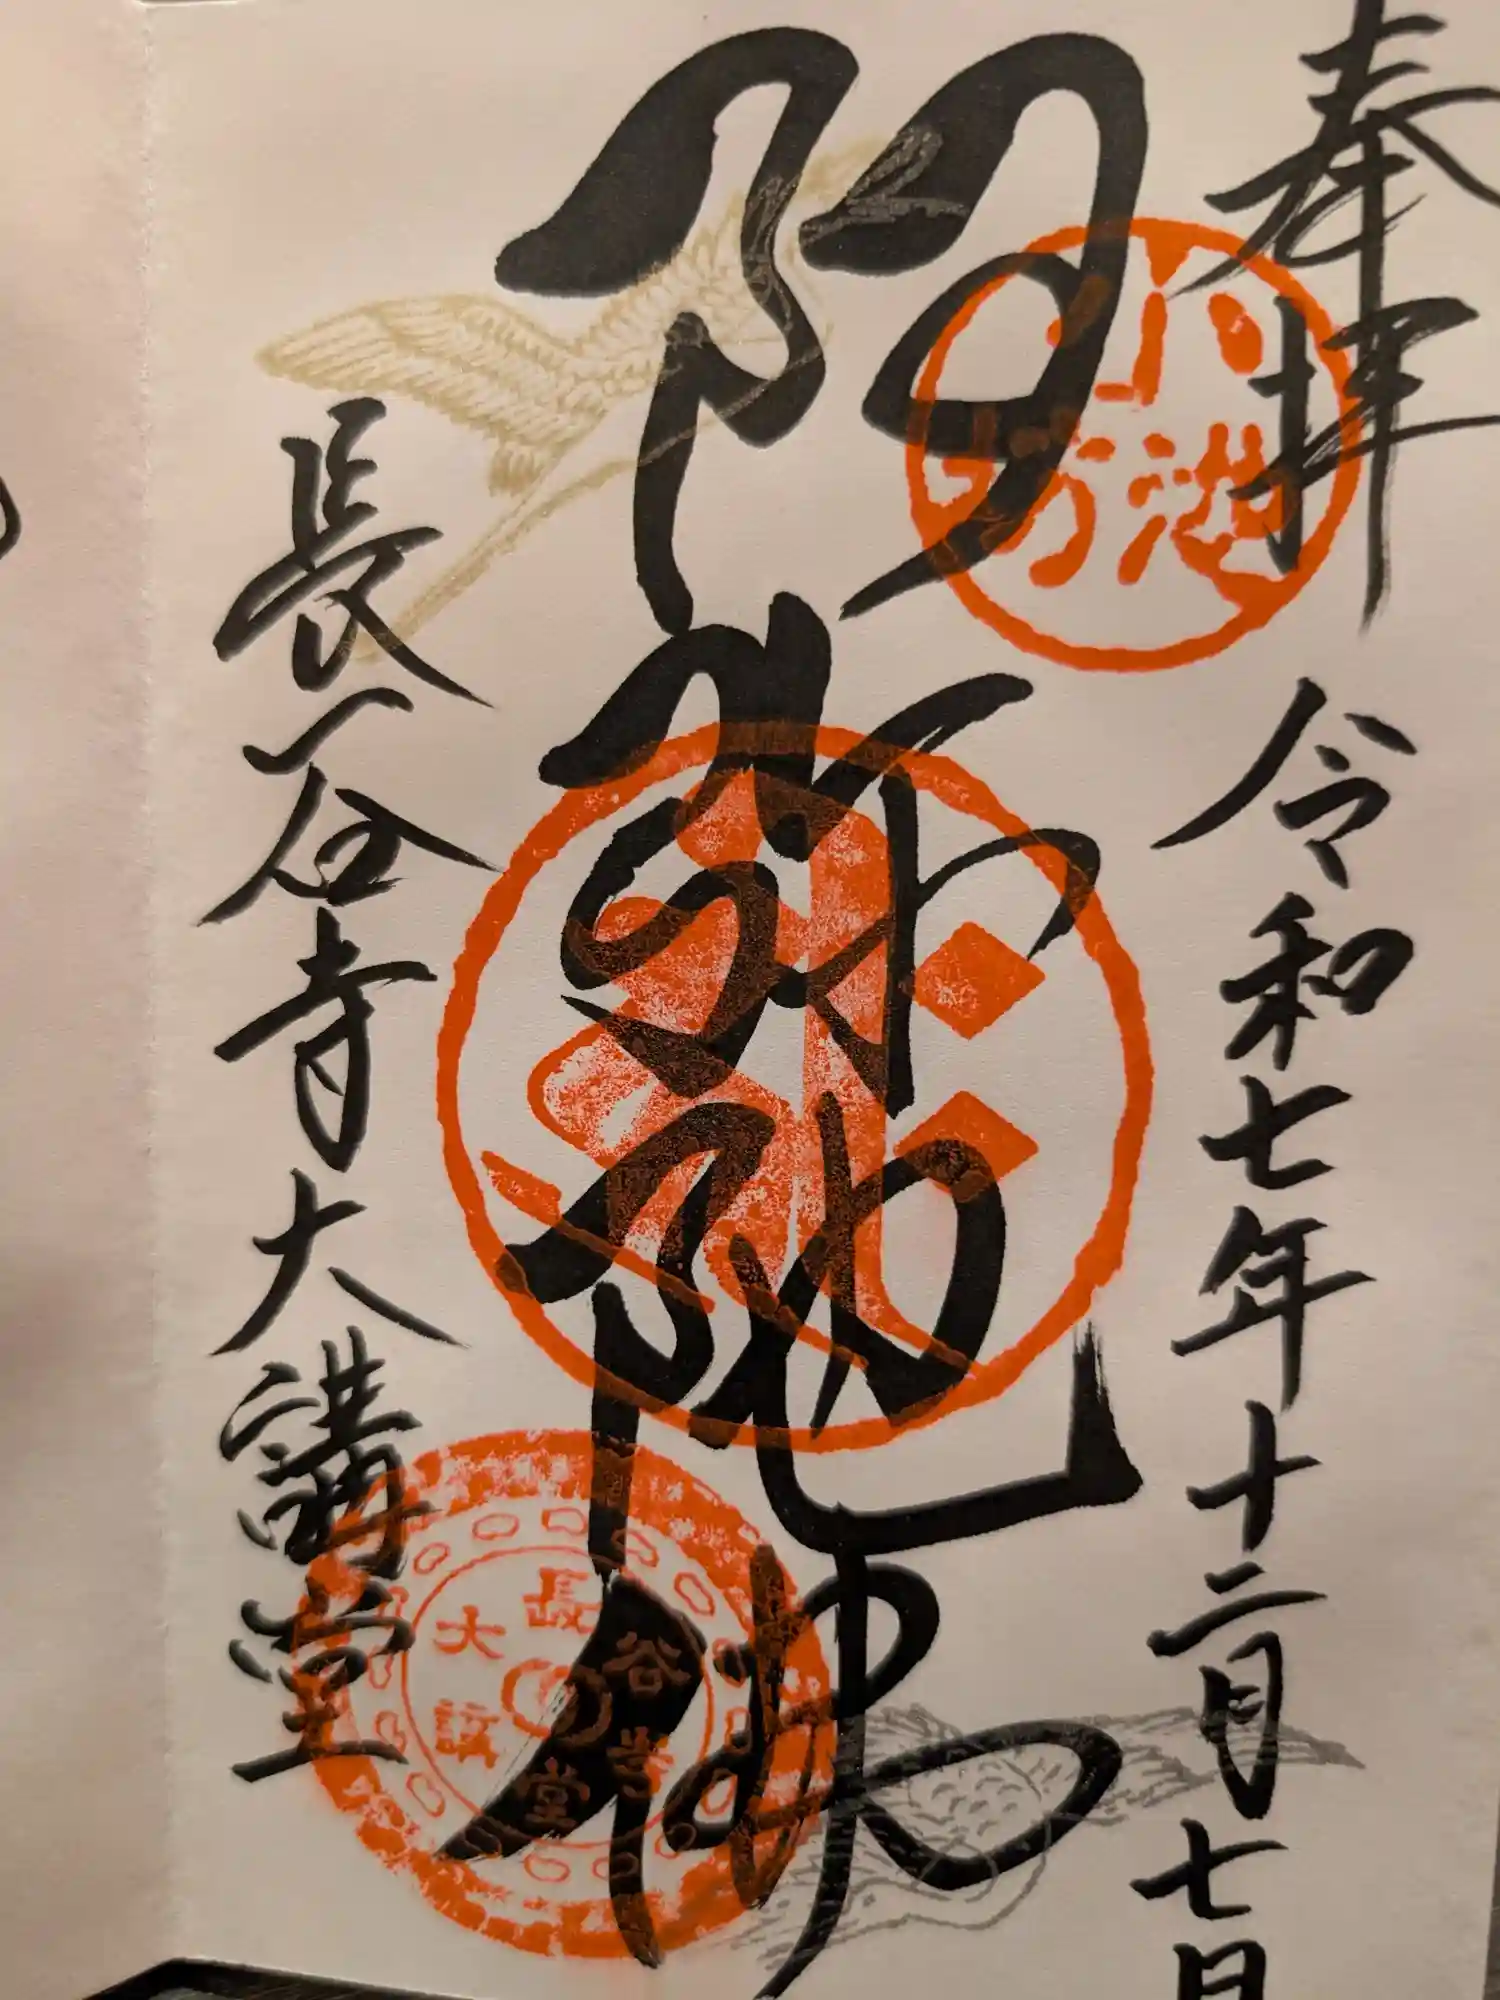 奉拝
令和七年十二月七日
阿弥陀佛
長谷寺大講堂
長谷寺大講堂